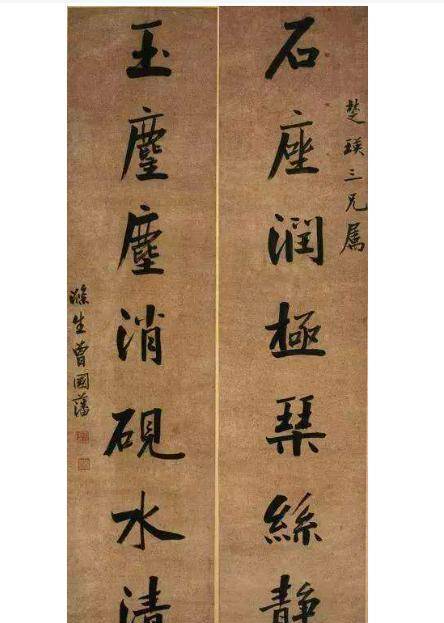 楚瑛三兄屬
石座潤極琹絲静
玉麈塵消硯水清
滌生曾國藩